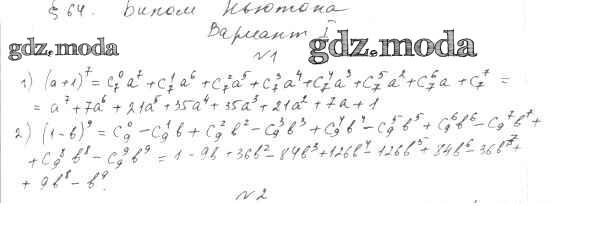 § 64. Бином Ньютона
Вариант I
gdz.moda
gdz.moda
№1
1) (a+1)⁷ = C₇⁰a⁷ + C₇¹a⁶ + C₇²a⁵ + C₇³a⁴ + C₇⁴a³ + C₇⁵a² + C₇⁶a + C₇⁷ =
= a⁷ + 7a⁶ + 21a⁵ + 35a⁴ + 35a³ + 21a² + 7a + 1
2) (1-b)⁹ = C₉⁰ - C₉¹b + C₉²b² - C₉³b³ + C₉⁴b⁴ - C₉⁵b⁵ + C₉⁶b⁶ - C₉⁷b⁷ +
+ C₉⁸b⁸ - C₉⁹b⁹ = 1 - 9b + 36b² - 84b³ + 126b⁴ - 126b⁵ + 84b⁶ - 36b⁷ +
+ 9b⁸ - b⁹.
№2